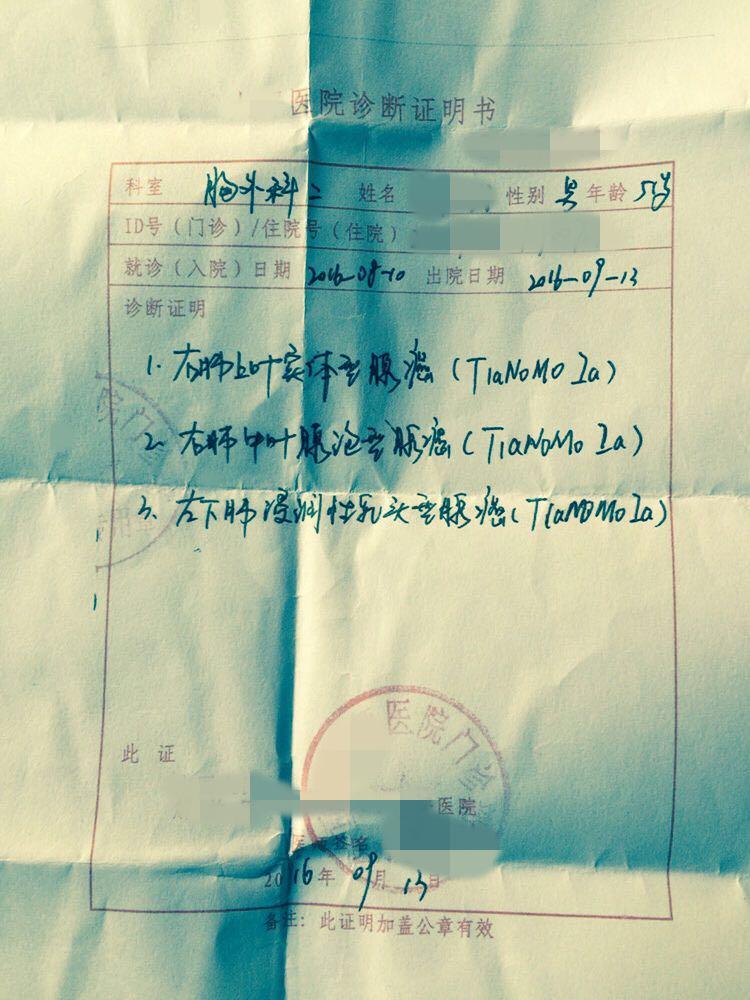 医院诊断证明书
科室 胸外科二 姓名 性别 男 年龄 5岁
ID号(门诊)/住院号(住院)
就诊(入院)日期 2016-08-10 出院日期 2016-09-13
诊断证明
1. 右肺上叶实体型腺癌(T1aN0M0 Ia)
2. 右肺中叶腺泡型腺癌(T1aN0M0 Ia)
3. 左下肺浸润性乳头型腺癌(T1aN0M0 Ia)
医院门
医院门诊
此证
医院
医师签名
2016年 09月 13日
备注:此证明加盖公章有效